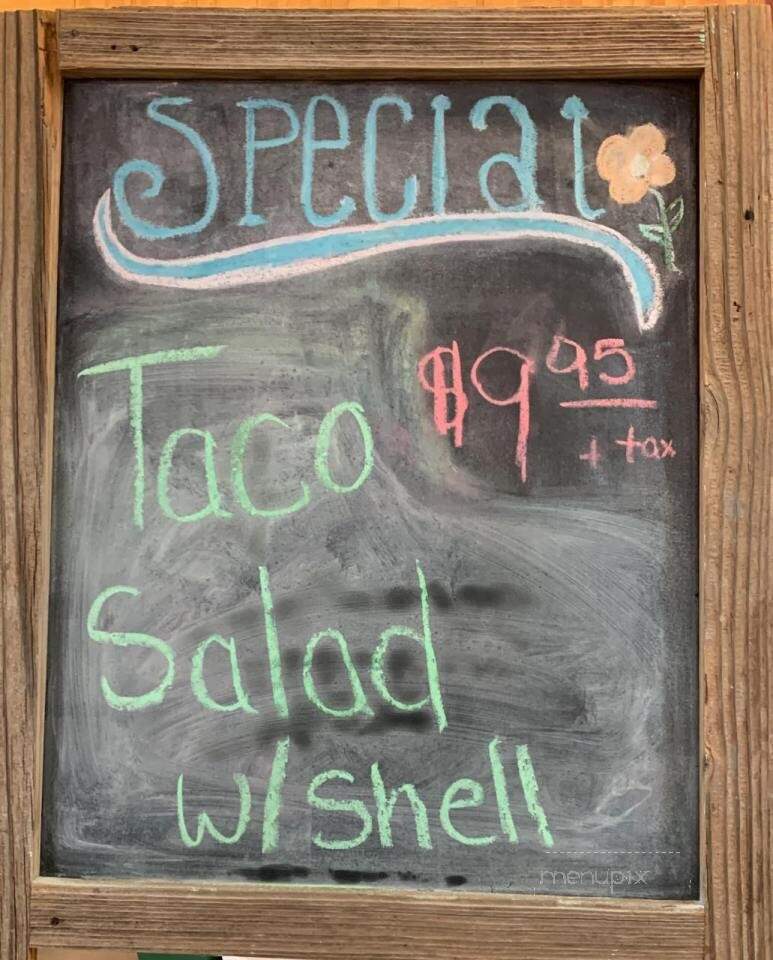 Special
Taco
$9.95
+ tax
Salad
w/shell
menupix